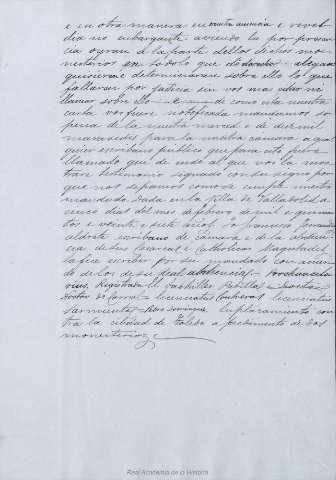 e en otra manera en vuestra ausencia e revel
dia no enbargante aviendo la por presen
cia oyran a la parte dellos dichos mo
nesterios en todo lo que de derecho alegar
quisieren e determinaran sobre ello lo que
fallaran por justicia sin vos mas citar ni
llamar sobre ello e de como esta nuestra
carta vos fuere notificada mandamos so
pena de la nuestra merced e de diez mil
maravedis para la nuestra camara a qual
quier escribano publico que para esto fuere
llamado que de ende al que vos la mos
trare testimonio signado con su signo por
que nos sepamos como se cumple nuestro
mandado. Dada en la villa de Valladolid a
cinco dias del mes de febrero de mil e quinien
tos e veinte e siete años. Yo Francisco
escribano de camara e de la abdien
cia de sus Cesareas e Catholicas Magestades
la fice escribir por su mandado con acuer
do de los de su real abdiencia
Registrada El bachiller Padilla
Doctor de Corral licenciatus licenciatus
Sarmiento Enplazamiento con
tra la cibdad de Toledo a pedimento de dos
monesterios
Real Academia de la Historia